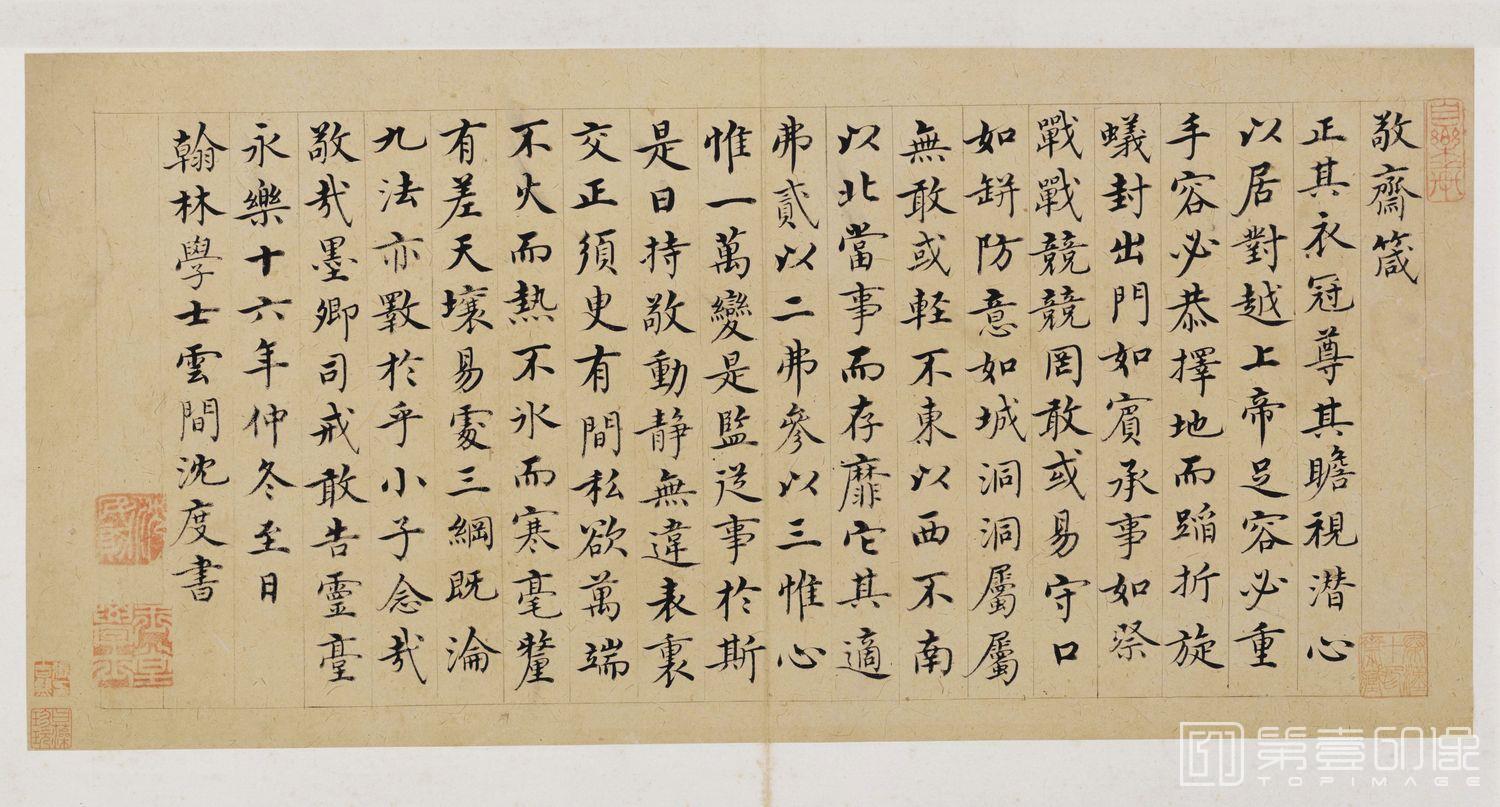 敬齋箴
正其衣冠尊其瞻視潛心
以居對越上帝足容必重
手容必恭擇地而蹈折旋
蟻封出門如賓承事如祭
戰戰競競罔敢或易守口
如缾防意如城洞洞屬屬
無敢或輕不東以西不南
以北當事而存靡它其適
弗貳以二弗參以三惟心
惟一萬變是監從事於斯
是曰持敬動靜無違表裏
交正須臾有間私欲萬端
不火而熱不冰而寒毫釐
有差天壤易處三綱既淪
九法亦斁於乎小子念哉
敬哉墨卿司戒敢告靈臺
永樂十六年仲冬至日
翰林學士雲間沈度書
第壹印像
TOPIMAGE